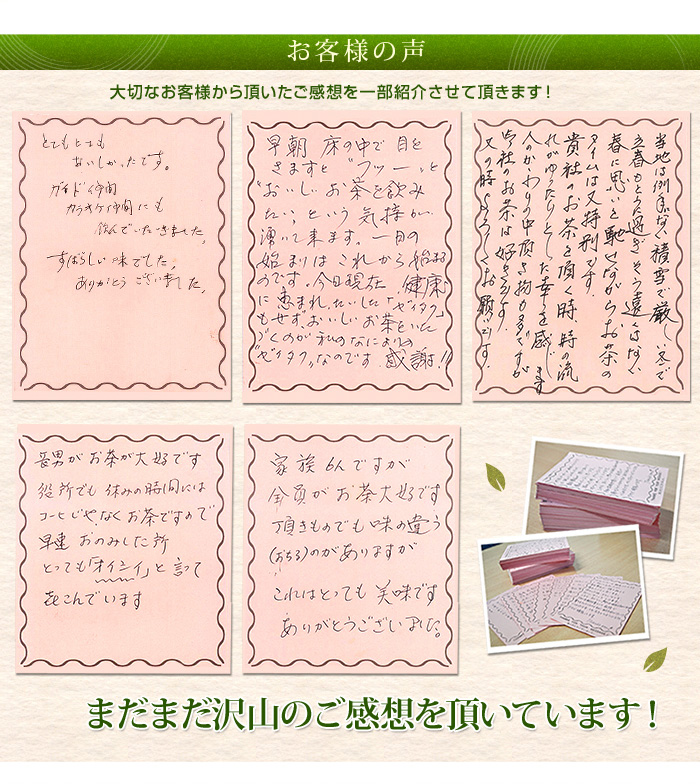 お客様の声
大切なお客様から頂いたご感想を一部紹介させて頂きます!
とてもとても
おいしかったです。
ガイド仲間
カラオケ仲間にも
飲んでいただきました。
すばらしい味でした。
ありがとうございました。
早朝 床の中で目を
きますと〝フッー〟と
〝おいしいお茶を飲み
たい〟という気持が
湧いて来ます。一日の
始まりはこれから始まる
のです。今日現在、健康
に恵まれ、たいした「ゼイタク」
もせず、おいしいお茶をいた
づくのが私のなによりの
〝ゼイタク〟なのです。感謝!!
当地は例年にない積雪で厳しい冬で
立春もとうに過ぎそう遠くはない
春に思いを馳せながらお茶の
タイムは又特別です。
貴社のお茶を頂く時、時の流
れがゆったりとした幸を感じます
人のかかわりの中頂き物も多々ですが
御社のお茶は好きです。
又の時よろしくお願いです。
長男がお茶が大好です
役所でも休みの時間には
コーヒじゃなくお茶ですので
早速おのみした所
とっても「オイシイ」と言って
喜こんでいます
家族6人ですが
全員がお茶大好です
頂きものでも味の違う
(おちる)のがありますが
これはとっても美味です
ありがとうございました。
まだまだ沢山のご感想を頂いています!